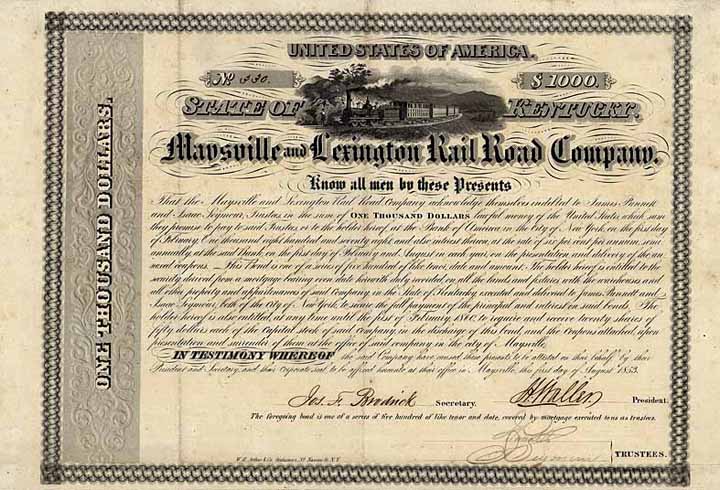 UNITED STATES OF AMERICA.
No. 330.
$1000.
STATE OF KENTUCKY.
Maysville and Lexington Rail Road Company.
Know all men by these Presents
That the Maysville and Lexington Rail Road Company acknowledge themselves indebted to James Punnett
and Isaac Seymour, Trustees in the sum of ONE THOUSAND DOLLARS lawful money of the United States, which sum
they promise to pay to said Trustees, or to the holder hereof, at the Bank of America in the City of New York, on the first day
of February, One thousand eight hundred and seventy eight, and also interest thereon, at the rate of six per cent per annum, semi
annually, at the said Bank, on the first day of February and August in each year, on the presentation and delivery of the an
nexed coupons. This Bond is one of a series of five hundred of like tenor, date and amount. The holder hereof is entitled to the
security derived from a mortgage bearing even date herewith duly recorded, on all the lands and fixtures with the warehouses and
all other property and appurtenances of said Company, in the State of Kentucky, executed and delivered to James Punnett and
Isaac Seymour, both of the City of New York, to secure the full payment of the principal and interest on said bonds. The
holder hereof is also entitled, at any time until the first of February, 1860, to require and receive twenty shares of
fifty dollars each of the Capital stock of said Company, in the discharge of this bond, and the Coupons attached, upon
presentation and surrender of them at the office of said company in the city of Maysville.
IN TESTIMONY WHEREOF the said Company have caused these presents to be attested on their behalf by their
President and Secretary, and their Corporate seal to be affixed hereunto at their office in Maysville, this first day of August 1853.
Jos. F. Brodrick Secretary. H Waller President.
The foregoing bond is one of a series of five hundred of like tenor and date, covered by mortgage executed to us as trustees.
Seymour TRUSTEES.
N.Y.
ONE THOUSAND DOLLARS.